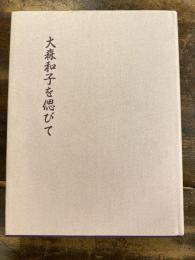 大森和子を偲びて